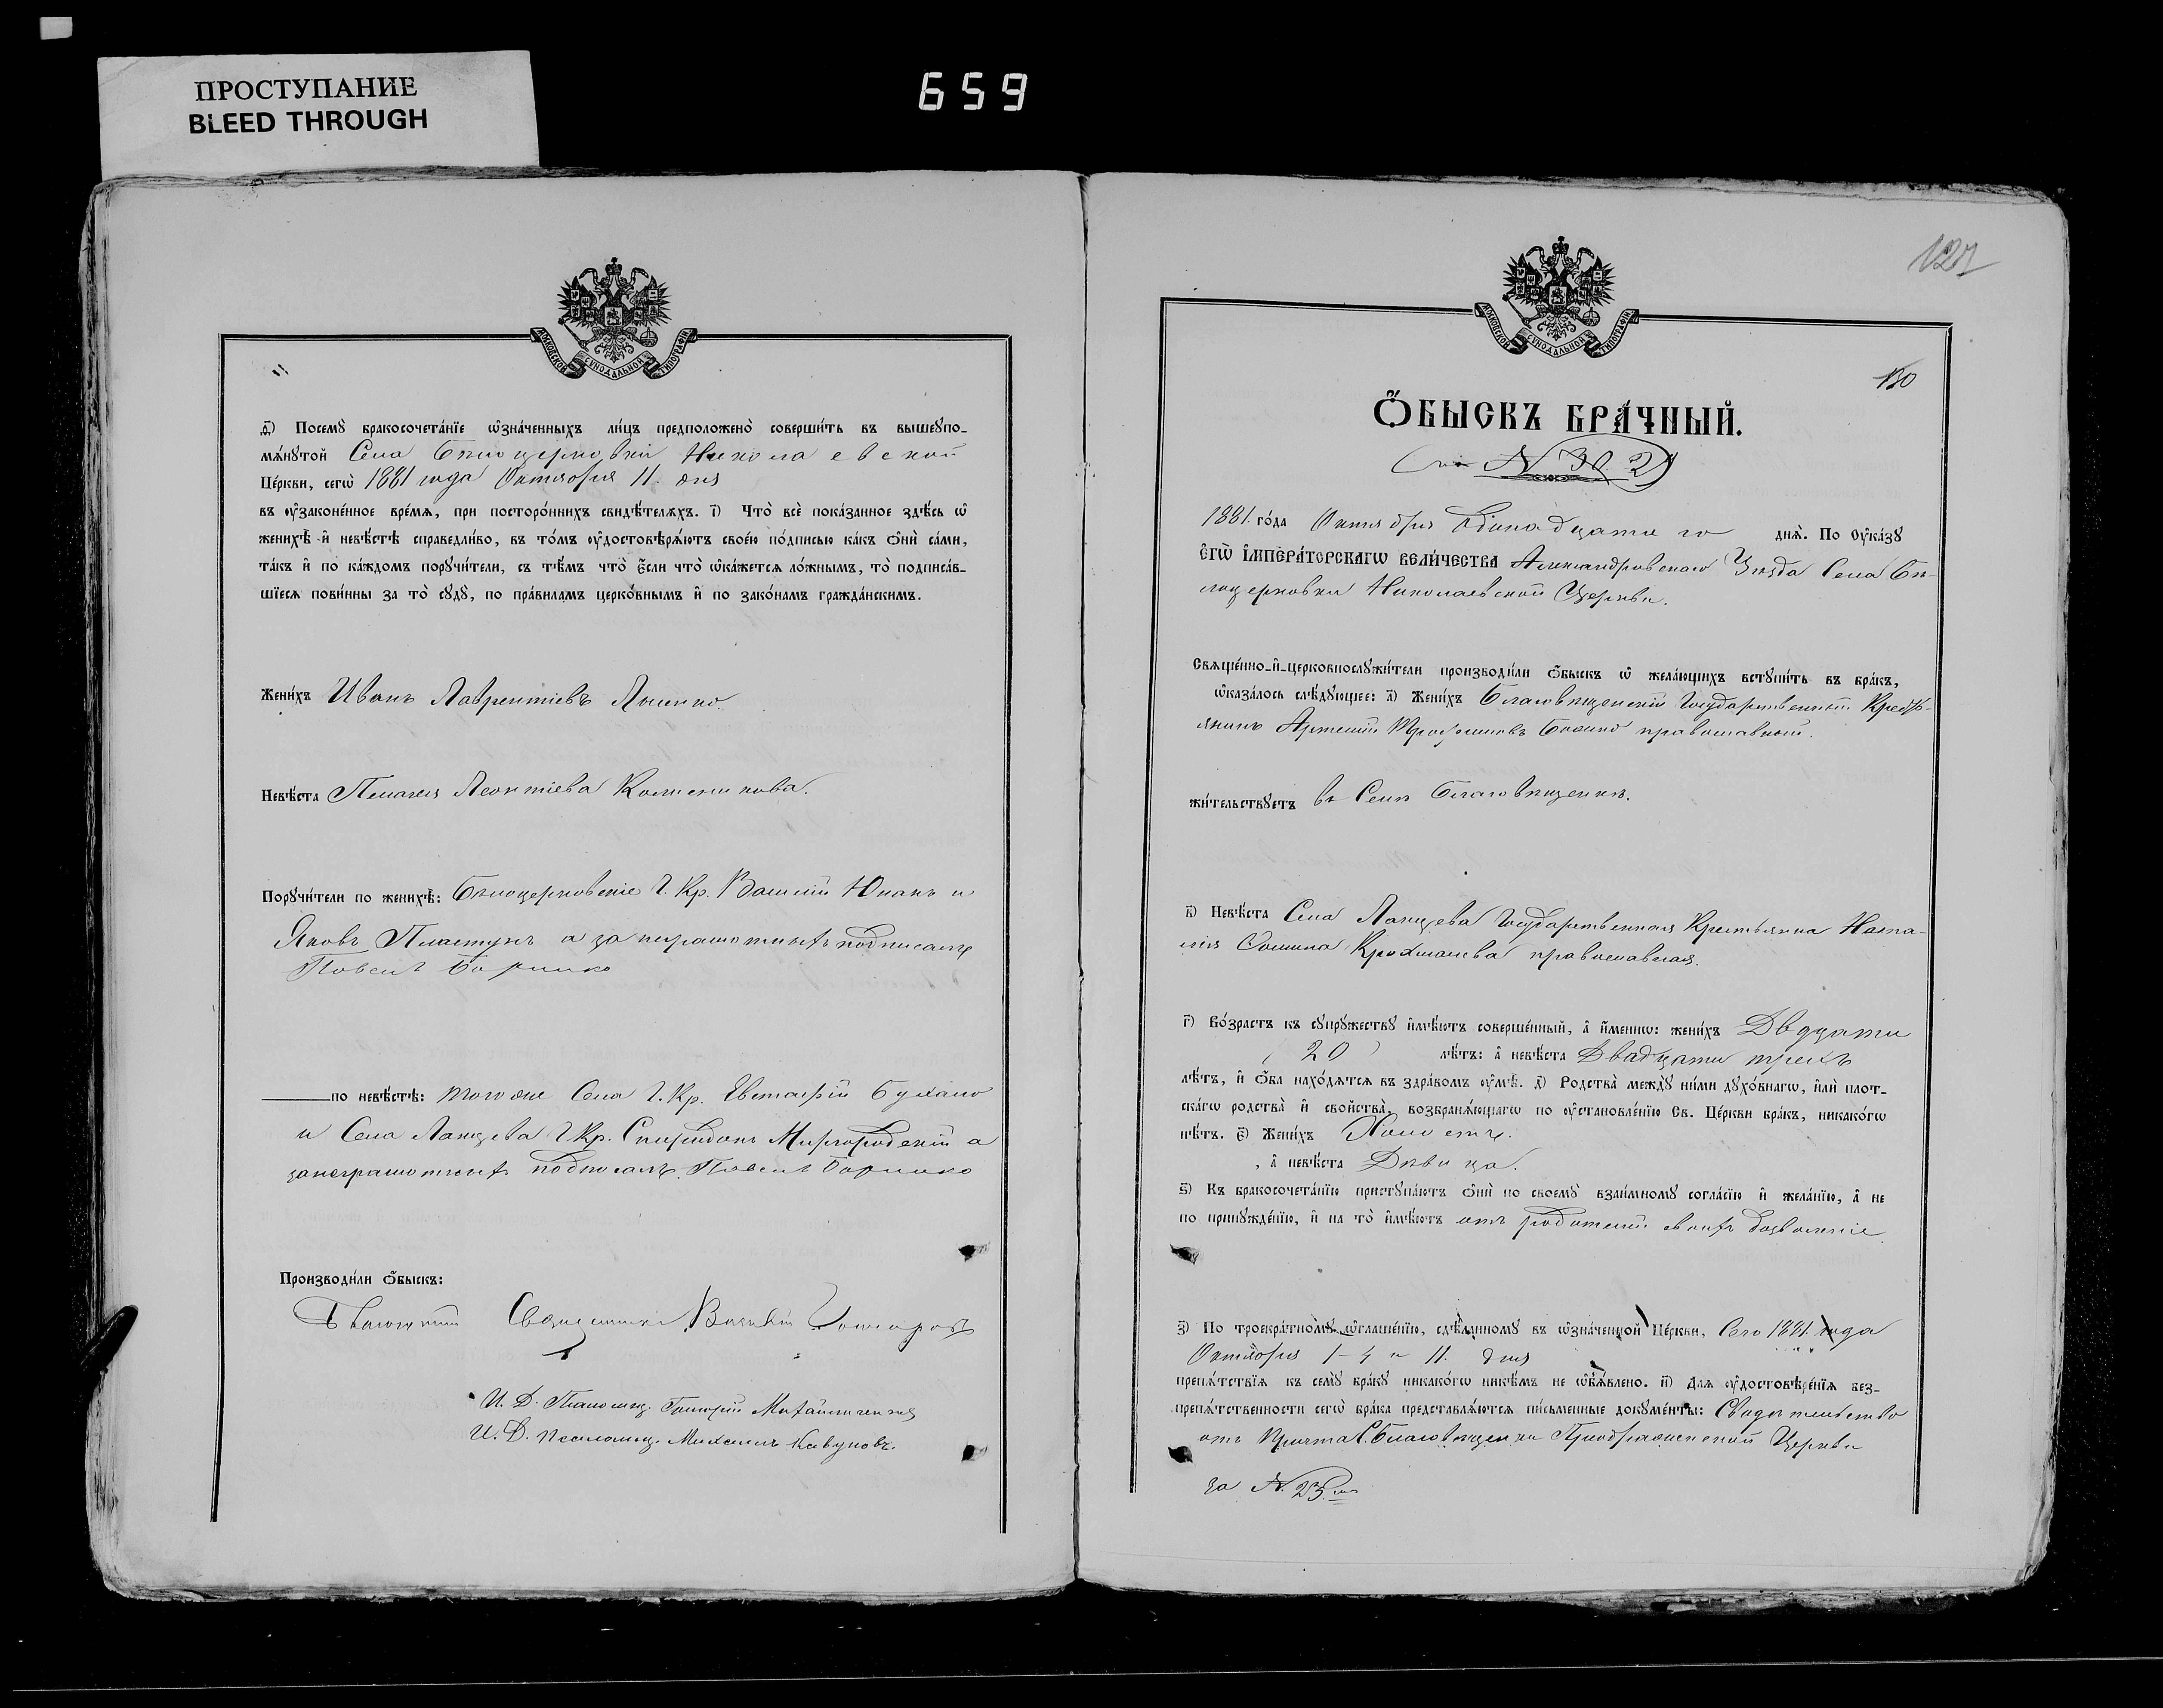 ПРОСТУПАНИЕ
BLEED THROUGH
659
МОСКОВСКОЙ СѴНОДАЛЬНОЙ ТИПОГРАФІИ
ѳ҃) Посемꙋ̀ бракосочета́нїе ѡ҆зна́ченныхъ ли́цъ предположено̀ соверши́ть въ вышеꙋпо-
мѧ́нꙋтой Села Бѣлоцерковки Николаевской
Це́ркви, сегѡ̀ 1881 года Октября 11. дня
въ ᲂу҆зако́ненное вре́мѧ, при посторо́ннихъ свидѣ́телѧхъ. і҃) Что̀ всѐ пока́занное здѣ́сь ѡ҆
женихѣ̀ и҆ невѣ́стѣ справедли́во, въ то́мъ ᲂу҆достовѣрѧ́ютъ свое́ю по́дписью ка́къ ѻ҆нѝ са́ми,
та́къ и҆ по ка́ждомъ порꙋчи́тели, съ тѣ́мъ что̀ є҆́сли что̀ ѡ҆ка́жетсѧ ло́жнымъ, то̀ подписа́в-
шїесѧ пови́нны за то̀ сꙋдꙋ̀, по пра́виламъ церко́внымъ и҆ по зако́намъ гражда́нскимъ.
Жени́хъ Иванъ Лаврентіевъ Лысенко.
Невѣ́ста Пелагея Леонтіева
Порꙋчи́тели по женихѣ̀: Бѣлоцерковскіе Г. Кр. Василій Юнакъ и
Яковъ Пластунъ а за неграмотныхъ подписалъ
по невѣ́стѣ: того же Села Г. Кр. Евстафій
и Села Ланцева Г. Кр. Спиридонъ Миргородскій а
за неграмотныхъ подписалъ
Производи́ли ѻ҆́быскъ:
Священникъ
И. Д. Псаломщ. Григорій
И. Д. псаломщ. Михаилъ Кавуновъ.
127
МОСКОВСКОЙ СѴНОДАЛЬНОЙ ТИПОГРАФІИ
130
Ѻ҆́БЫСКЪ БРА́ЧНЫЙ.
1881. го́да Октября Одинадцатого днѧ̀. По ᲂу҆ка́зꙋ
Є҆ГѠ̀ И҆МПЕРА́ТОРСКАГѠ ВЕЛИ́ЧЕСТВА Александровскаго Уѣзда Села Бѣ-
лоцерковки Николаевской Церкви.
Свѧще́нно-и҆-церковнослꙋжи́тели производи́ли ѻ҆́быскъ ѡ҆ жела́ющихъ встꙋпи́ть въ бра́къ,
ѡ҆каза́лось слѣ́дꙋющее: а҃) Жени́хъ Благовѣщенскій Государственный Кресть-
янинъ Артемій Трофимовъ православный.
жи́тельствꙋетъ въ Селѣ Благовѣщенкѣ.
в҃) Невѣ́ста Села Ланцева Государственная Крестьянка Ната-
лія Сомина Крохмалева православная.
г҃) Во́зрастъ къ сꙋпрꙋ́жествꙋ и҆мѣ́ютъ соверше́нный, а҆ и҆́меннѡ: жени́хъ Двадцати
20 лѣ́тъ: а҆ невѣ́ста Двадцати трехъ
лѣ́тъ, и҆ ѻ҆́ба нахо́дѧтсѧ въ здра́вомъ ᲂу҆мѣ̀. д҃) Родства̀ междꙋ̀ ни́ми дꙋхо́внагѡ, и҆лѝ плот-
ска́гѡ родства̀ и҆ сво́йства̀, возбранѧ́ющагѡ по ᲂу҆становле́нїю Св. Це́ркви бра́къ, никако́гѡ
нѣ́тъ. є҃) Жени́хъ Холостъ.
, а҆ невѣ́ста Дѣвица.
ѕ҃) Къ бракосочета́нїю пристꙋпа́ютъ ѻ҆нѝ по своемꙋ̀ взаи́мномꙋ согла́сїю и҆ жела́нїю, а҆ не
по принꙋжде́нїю, и҆ на то̀ и҆мѣ́ютъ отъ родителей своихъ дозволеніе
з҃) По троекра́тномꙋ ѡ҆глаше́нїю, сдѣ́ланномꙋ въ ѡ҆зна́ченной Це́ркви, Сего 1881. года
Октября 1 - 4 и 11. дня
препѧ́тствїѧ къ семꙋ̀ бра́кꙋ никако́гѡ никѣ́мъ не ѡ҆б̾ѧ́влено. и҃) Длѧ ᲂу҆достовѣре́нїѧ без-
препѧ́тственности сегѡ̀ бра́ка представлѧ́ютсѧ пи́сьменные докꙋме́нты: Свидѣтельство
отъ Причта С. Благовѣщенки Преображенской Церкви
за N. 23.